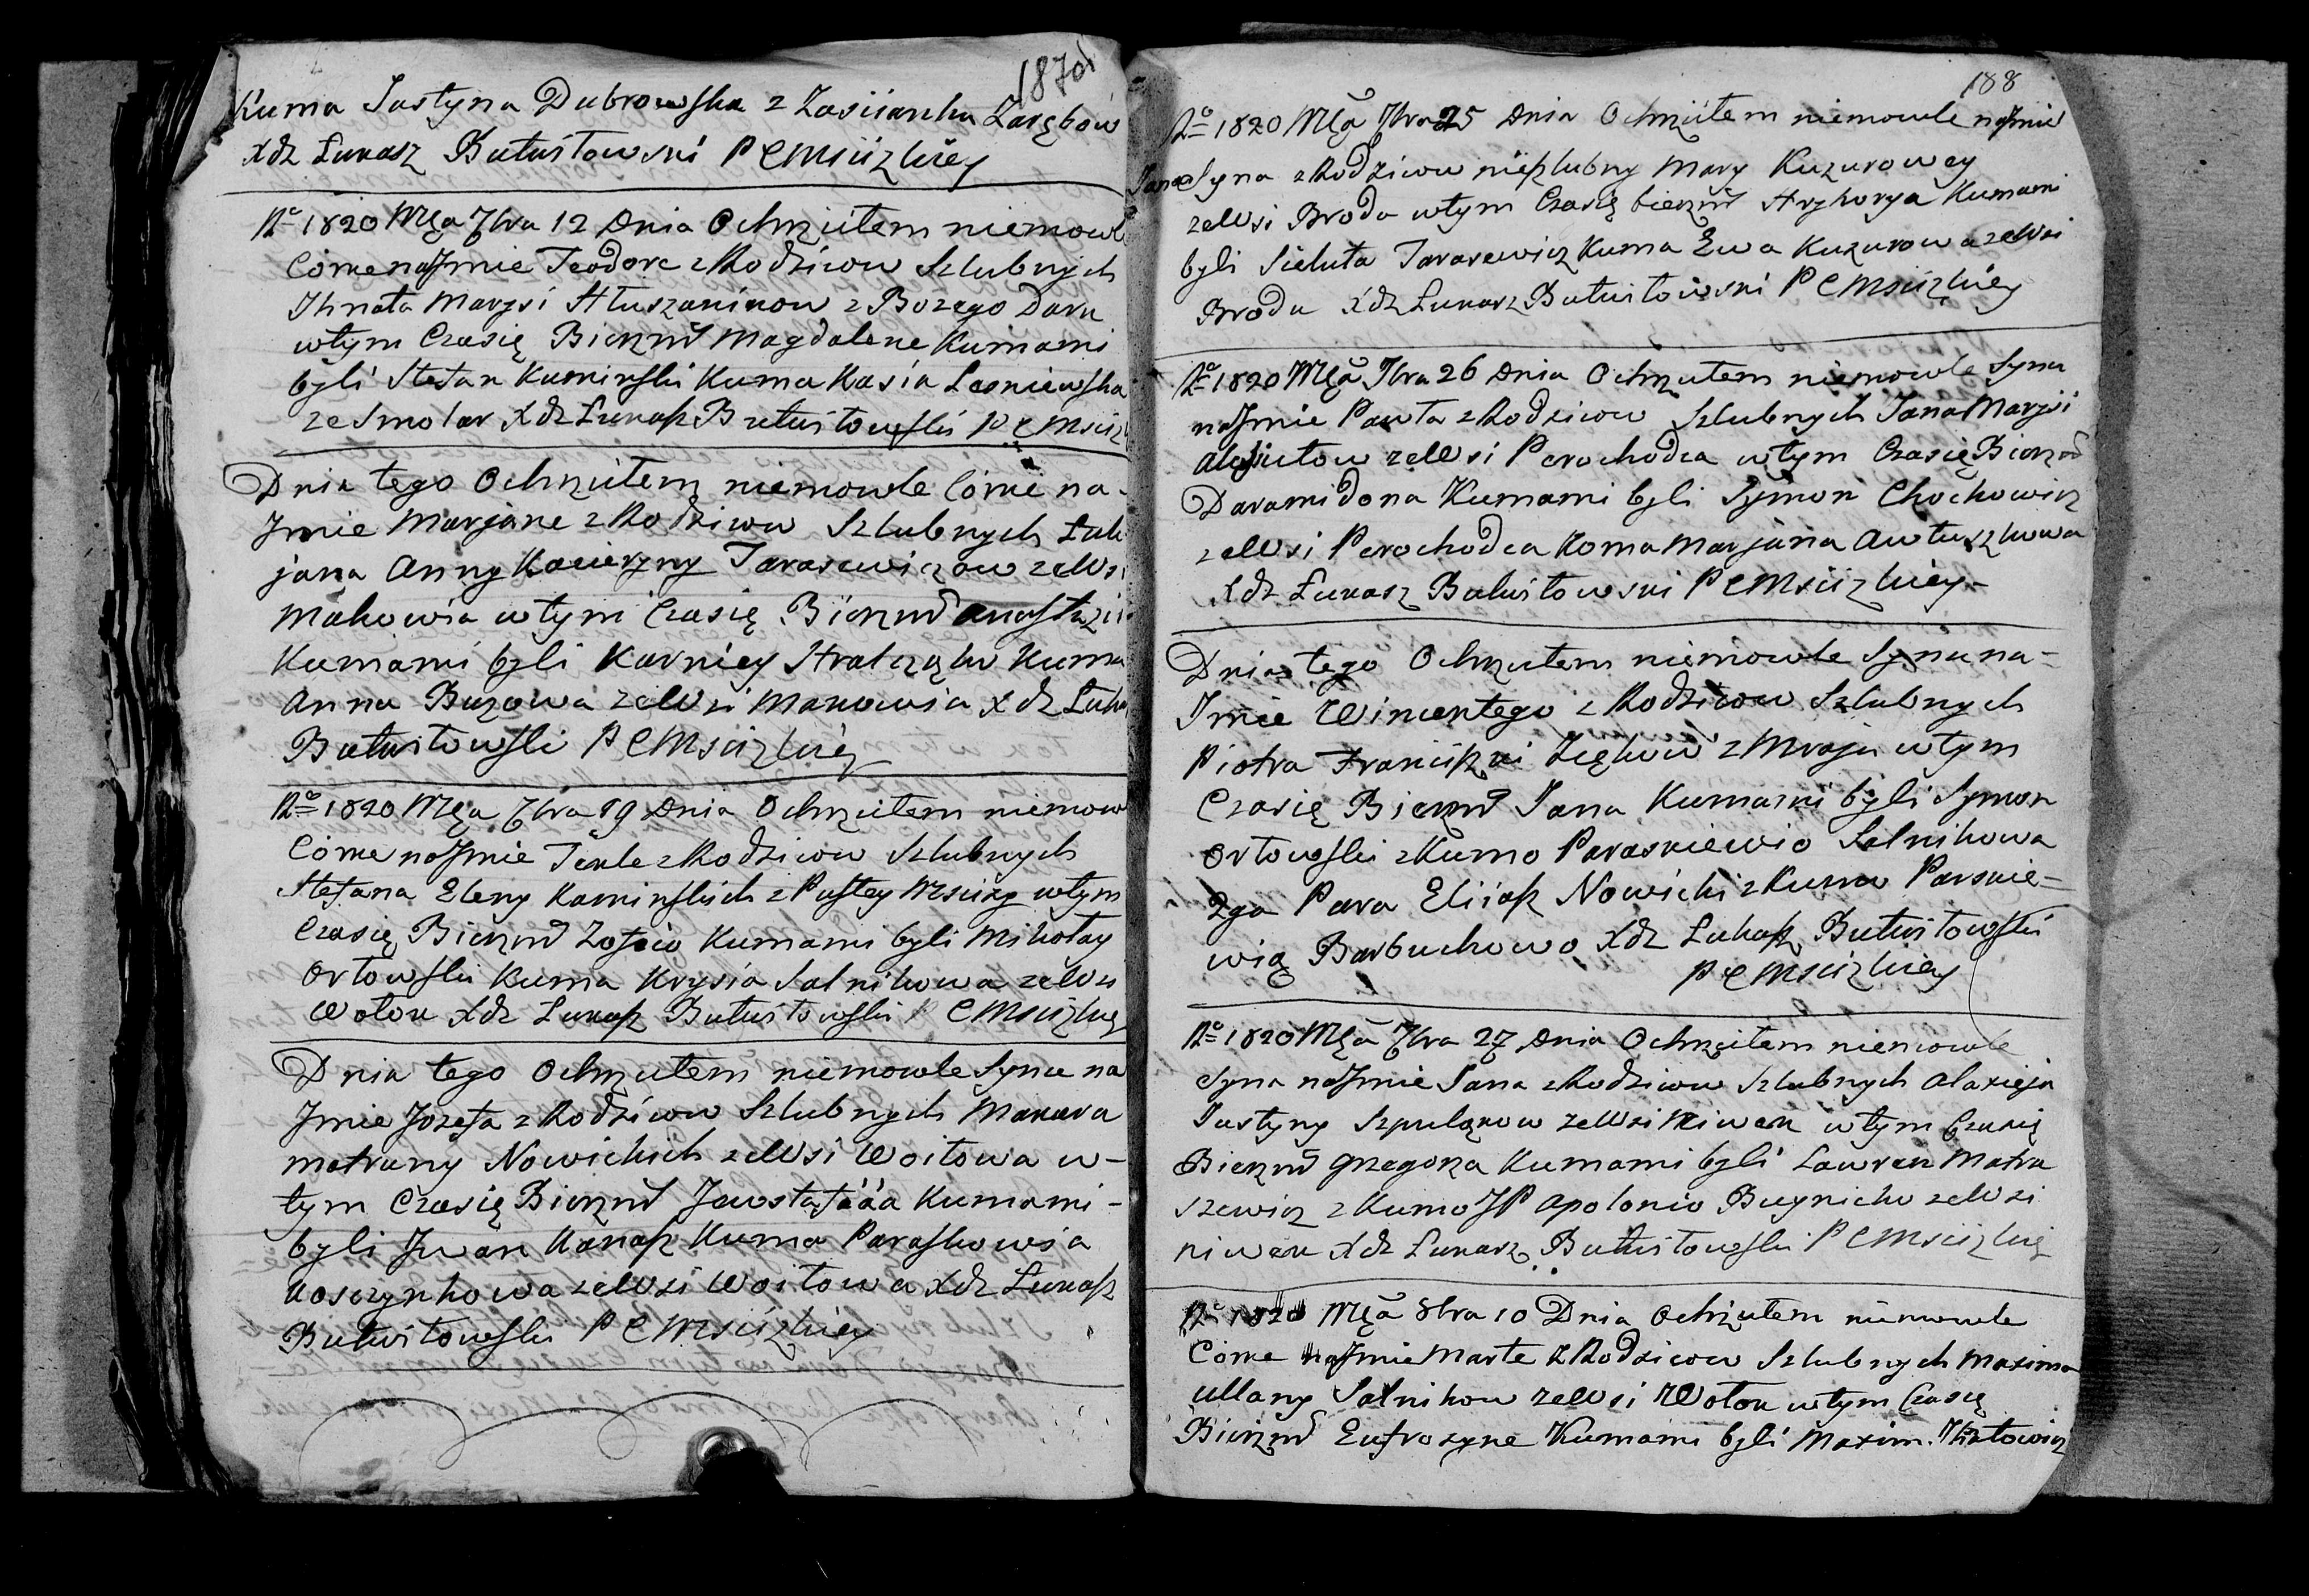 187od
Kuma Justyna Dubrowska z Zasiianku Zarębow
Xdz Łukasz Butwiłowski P C Msciizkiey
Rº 1820 Mca 7bra 12 Dnia Ochrzciłem niemowle
Córke na Jmie Teodore z Rodziców Szlubnych
Ihnata Maryi Hłuszaninow z Bozego Daru
wtym Czasię Bierzmd Magdalene Kumami
byli Stefan Kaminski Kuma Kasia Lesniewska
ze Smolar Xdz Łukasz Butwiłowski P C Msciz
Dnia tego Ochrzciłem niemowle Córke na-
Jmie Marjane z Rodziców Szlubnych Łuk
jana Anny Kacieryny Tarasewiczow ze Wsi
Makowia wtym Czasię Bierzmd Anastazii
Kumami byli Karniey Stralczyk Kuma
Anna Buzowa ze Wsi Makowia Xdz Łuka
Butwiłowski P C Msciizkiey
Rº 1820 Mca 7bra 19 Dnia Ochrzciłem niemow
Córke na Jmie Tekle z Rodziców Szlubnych
Stefana Eleny Kaminskich z Pustey Mscizy wtym
Czasię Bierzmd Zofiio Kumami byli Mikołay
Orłowski Kuma Krysia Salnikowa ze Wsi
Wołok Xdz Łukasz Butwiłowski P C Mscizkiey
Dnia tego Ochrzciłem niemowle Syna na
Jmie Jozefa z Rodziców Szlubnych Makara
Matruny Nowickich ze Wsi Woitowa w-
tym Czasię Bierzmd Jewstafiia Kumami-
byli Jwan Kanasz Kuma Paraskowia
Koszynkowa ze Wsi Woitowa Xdz Łukasz
Butwiłowski P C Msciizkiey
188
Rº 1820 Mca 7bra 25 Dnia Ochrzciłem niemowle na Jmie
Jana Syna z Rodziców nieszlubny Mary Kuzurowey
ze Wsi Broda wtym Czasię bierzmd Hryhorya Kumami
byli Sieluta Tarasewicz Kuma Ewa Kuzurowa ze Wsi
Brodu Xdz Łukasz Butwiłowski P C Msciizkiey
Rº 1820 Mca 7bra 26 Dnia Ochrzciłem niemowle Syna
na Jmie Pawła z Rodziców Szlubnych Jana Maryi
ze Wsi Perochodca wtym Czasię Bierzmd
Daramidona Kumami byli Symon Chochowicz
ze Wsi Perochodca Koma Marjana Awłuszkowa
Xdz Łukasz Butwiłowski P C Msciizkiey-
Dnia tego Ochrzciłem niemowle Syna na-
Jmie Wincentego z Rodziców Szlubnych
Piotra Franciszki Zięków z Mraju wtym
Czasię Bierzmd Jana Kumami byli Symon
Orłowski z Kumo Paraskiewio Salnikowa
2ga Para Eliasz Nowicki z Kumo Parskie-
wią Barbuchowo Xdz Łukasz Butwiłowski
P C Msciizkiey
Rº 1820 Mca 7bra 27 Dnia Ochrzciłem niemowle
Syna na Jmie Jana z Rodziców Szlubnych Alaxieja
Justyny Szpuląkow ze Wsi Niwek wtym Czasię
Bierzmd Grzegorza Kumami byli Lawren Matra
szewicz z Kumo JP Apolonio Buynicko ze Wsi
Niwek Xdz Łukasz Butwiłowski P C Msciizkie
Rº 1820 Mca 8bra 10 Dnia Ochrzciłem niemowle
Córke na Jmie Marte z Rodziców Szlubnych Maxima
Ullany Salnikow ze Wsi Wołok wtym Czasię
Bierzmd Eufrozyne Kumami byli Maxim Ihnatowicz